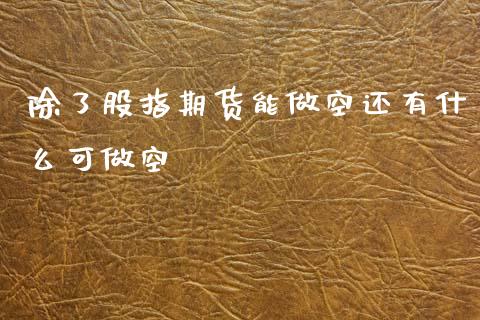 除了股指期货能做空还有什
么可做空